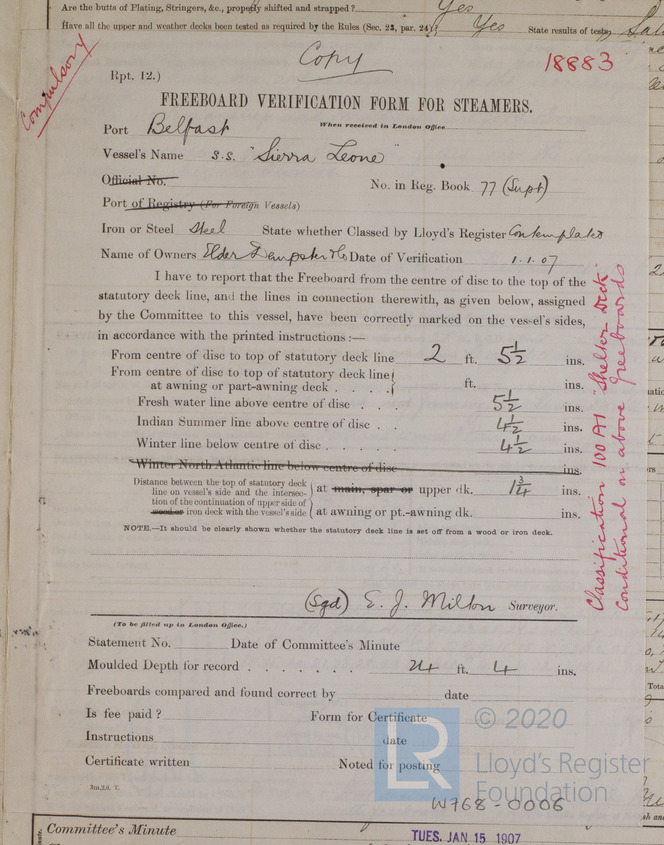 Are the butts of Plating, Stringers, &c., properly shifted and strapped ? Yes
Have all the upper and weather decks been tested as required by the Rules (Sec. 23, par. 24)? Yes State results of tests,
Copy
18883
Compulsory
Rpt. 12.)
FREEBOARD VERIFICATION FORM FOR STEAMERS.
Port Belfast When received in London Office
Vessel's Name S.S. "Sierra Leone"
Official No.
No. in Reg. Book 77 (Supt)
Port of Registry (For Foreign Vessels)
Iron or Steel Steel State whether Classed by Lloyd's Register Contemplated
Name of Owners Elder Dempster & Co Date of Verification 1.1.07
I have to report that the Freeboard from the centre of disc to the top of the
statutory deck line, and the lines in connection therewith, as given below, assigned
by the Committee to this vessel, have been correctly marked on the vessel's sides,
in accordance with the printed instructions :—
From centre of disc to top of statutory deck line 2 ft. 5½ ins.
From centre of disc to top of statutory deck line
at awning or part-awning deck . . . . ft. ins.
Fresh water line above centre of disc . . . 5½ ins.
Indian Summer line above centre of disc . . 4½ ins.
Winter line below centre of disc . . . . . 4½ ins.
Winter North Atlantic line below centre of disc ins.
Distance between the top of statutory deck
line on vessel's side and the intersec-
tion of the continuation of upper side of
wood or iron deck with the vessel's side
at main, spar or upper dk. 1¾ ins.
at awning or pt.-awning dk. ins.
NOTE.—It should be clearly shown whether the statutory deck line is set off from a wood or iron deck.
Classification 100 A1 "Shelter Deck"
conditional on above freeboards
(Sgd) E. J. Milton Surveyor.
(To be filled up in London Office.)
Statement No. Date of Committee's Minute
Moulded Depth for record . . . . . . . 24 ft. 4 ins.
Freeboards compared and found correct by date
Is fee paid ? Form for Certificate
Instructions date
Certificate written Noted for posting
3m,2,6. T.
LR
© 2020
Lloyd's Register
Foundation
W768-0006
Committee's Minute TUES. JAN 15 1907